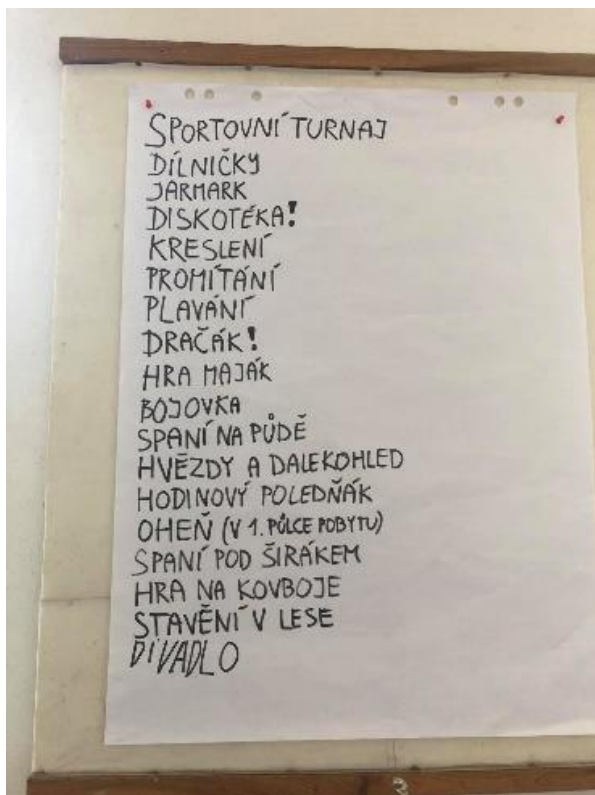 SPORTOVNÍ TURNAJ
DÍLNIČKY
JARMARK
DISKOTÉKA!
KRESLENÍ
PROMÍTÁNÍ
PLAVÁNÍ
DRAČÁK!
HRA MAJÁK
BOJOVKA
SPANÍ NA PŮDĚ
HVĚZDY A DALEKOHLED
HODINOVÝ POLEDŇÁK
OHEŇ (V 1. PŮLCE POBYTU)
SPANÍ POD ŠIRÁKEM
HRA NA KOVBOJE
STAVĚNÍ V LESE
DIVADLO